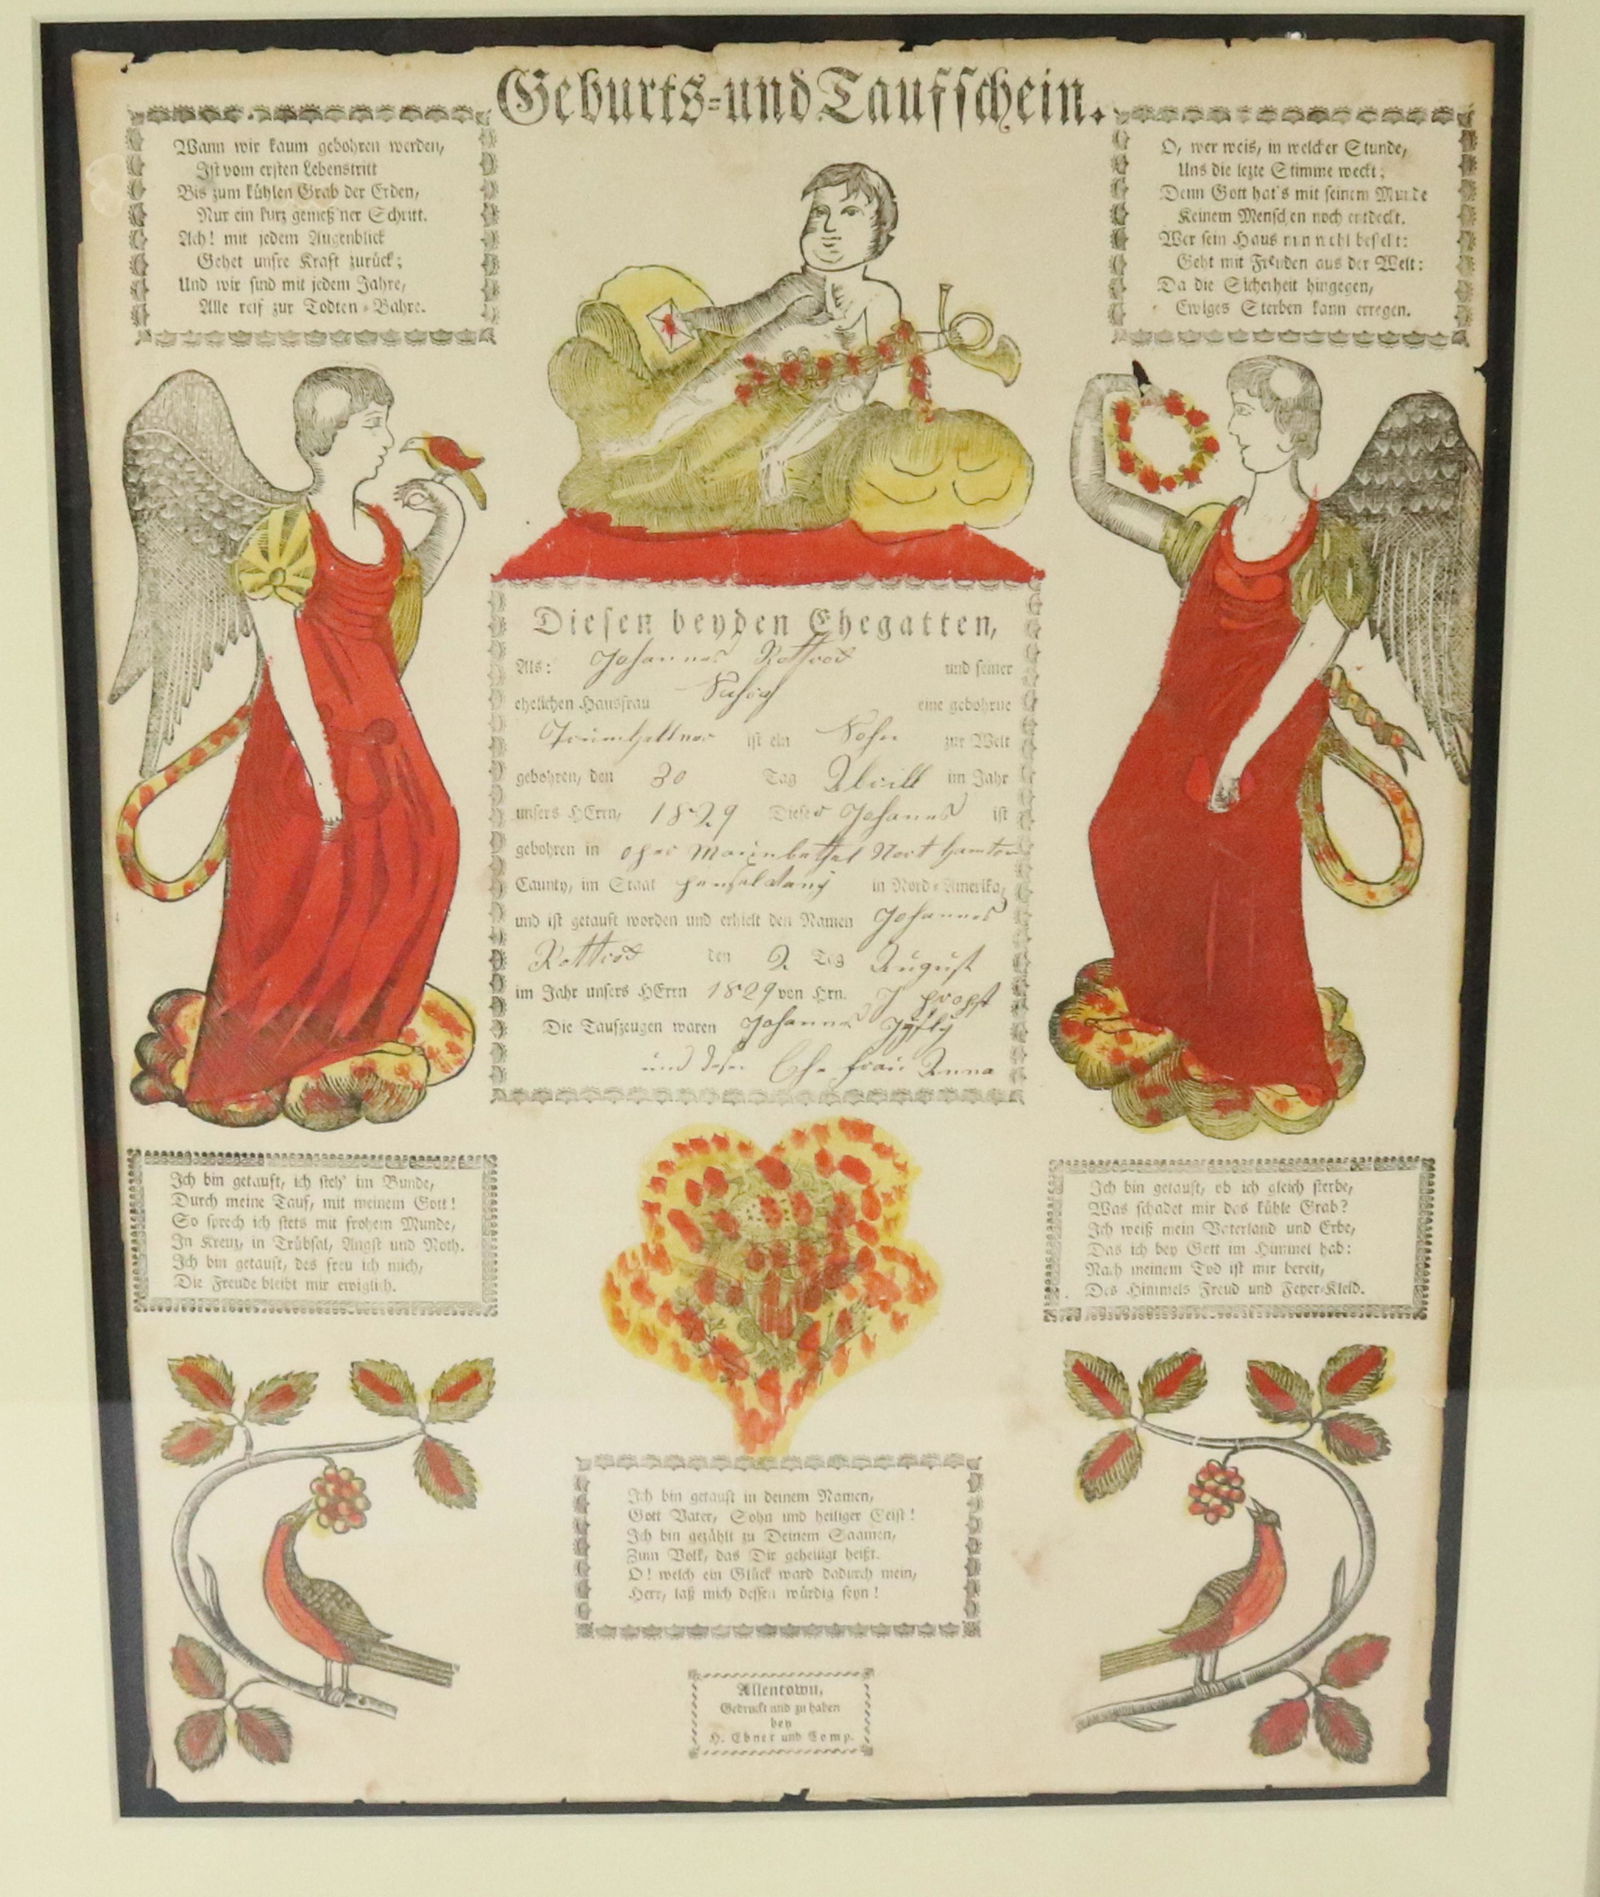 Geburts-und Taufschein.
Wann wir kaum gebohren werden,
Ist vom ersten Lebenstritt
Bis zum kühlen Grab der Erden,
Nur ein kurz gemeß'ner Schritt.
Ach! mit jedem Augenblick
Gehet unsre Kraft zurück;
Und wir sind mit jedem Jahre,
Alle reif zur Todten-Bahre.
O, wer weis, in welcher Stunde,
Uns die lezte Stimme weckt;
Denn Gott hat's mit seinem Munde
Keinem Menschen noch entdeckt.
Wer sein Haus nun wohl bestellt:
Geht mit Freuden aus der Welt:
Da die Sicherheit hingegen,
Ewiges Sterben kann erregen.
Diesen beyden Ehegatten,
Als: Johannes Rothrod und seiner
ehelichen Hausfrau eine gebohrne
ist ein Sohn zur Welt
gebohren, den 30 Tag Abrill im Jahr
unsers HErrn, 1829 Dieser Johannes ist
gebohren in ober Northamton
Caunty, im Staat in Nord-Amerika,
und ist getauft worden und erhielt den Namen Johannes
Rothrod den 2 Tag August
im Jahr unsers HErrn 1829 von Hrn. J probst
Die Taufzeugen waren Johannes
und deßen Ehe frau Anna
Ich bin getauft, ich steh' im Bunde,
Durch meine Tauf, mit meinem Gott!
So sprech ich stets mit frohem Munde,
In Kreuz, in Trübsal, Angst und Noth.
Ich bin getauft, des freu ich mich,
Die Freude bleibt mir ewiglich.
Ich bin getauft, ob ich gleich sterbe,
Was schadet mir das kühle Grab?
Ich weiß mein Vaterland und Erbe,
Das ich bey Gott im Himmel hab:
Nach meinem Tod ist mir bereit,
Des Himmels Freud und Feyer-Kleid.
Ich bin getauft in deinem Namen,
Gott Vater, Sohn und heiliger Geist!
Ich bin gezählt zu Deinem Saamen,
Zum Volk, das Dir geheiligt heißt.
O! welch ein Glück ward dadurch mein,
Herr, laß mich dessen würdig seyn!
Allentown,
Gedruckt und zu haben
bey
H. Ebner und Comp.